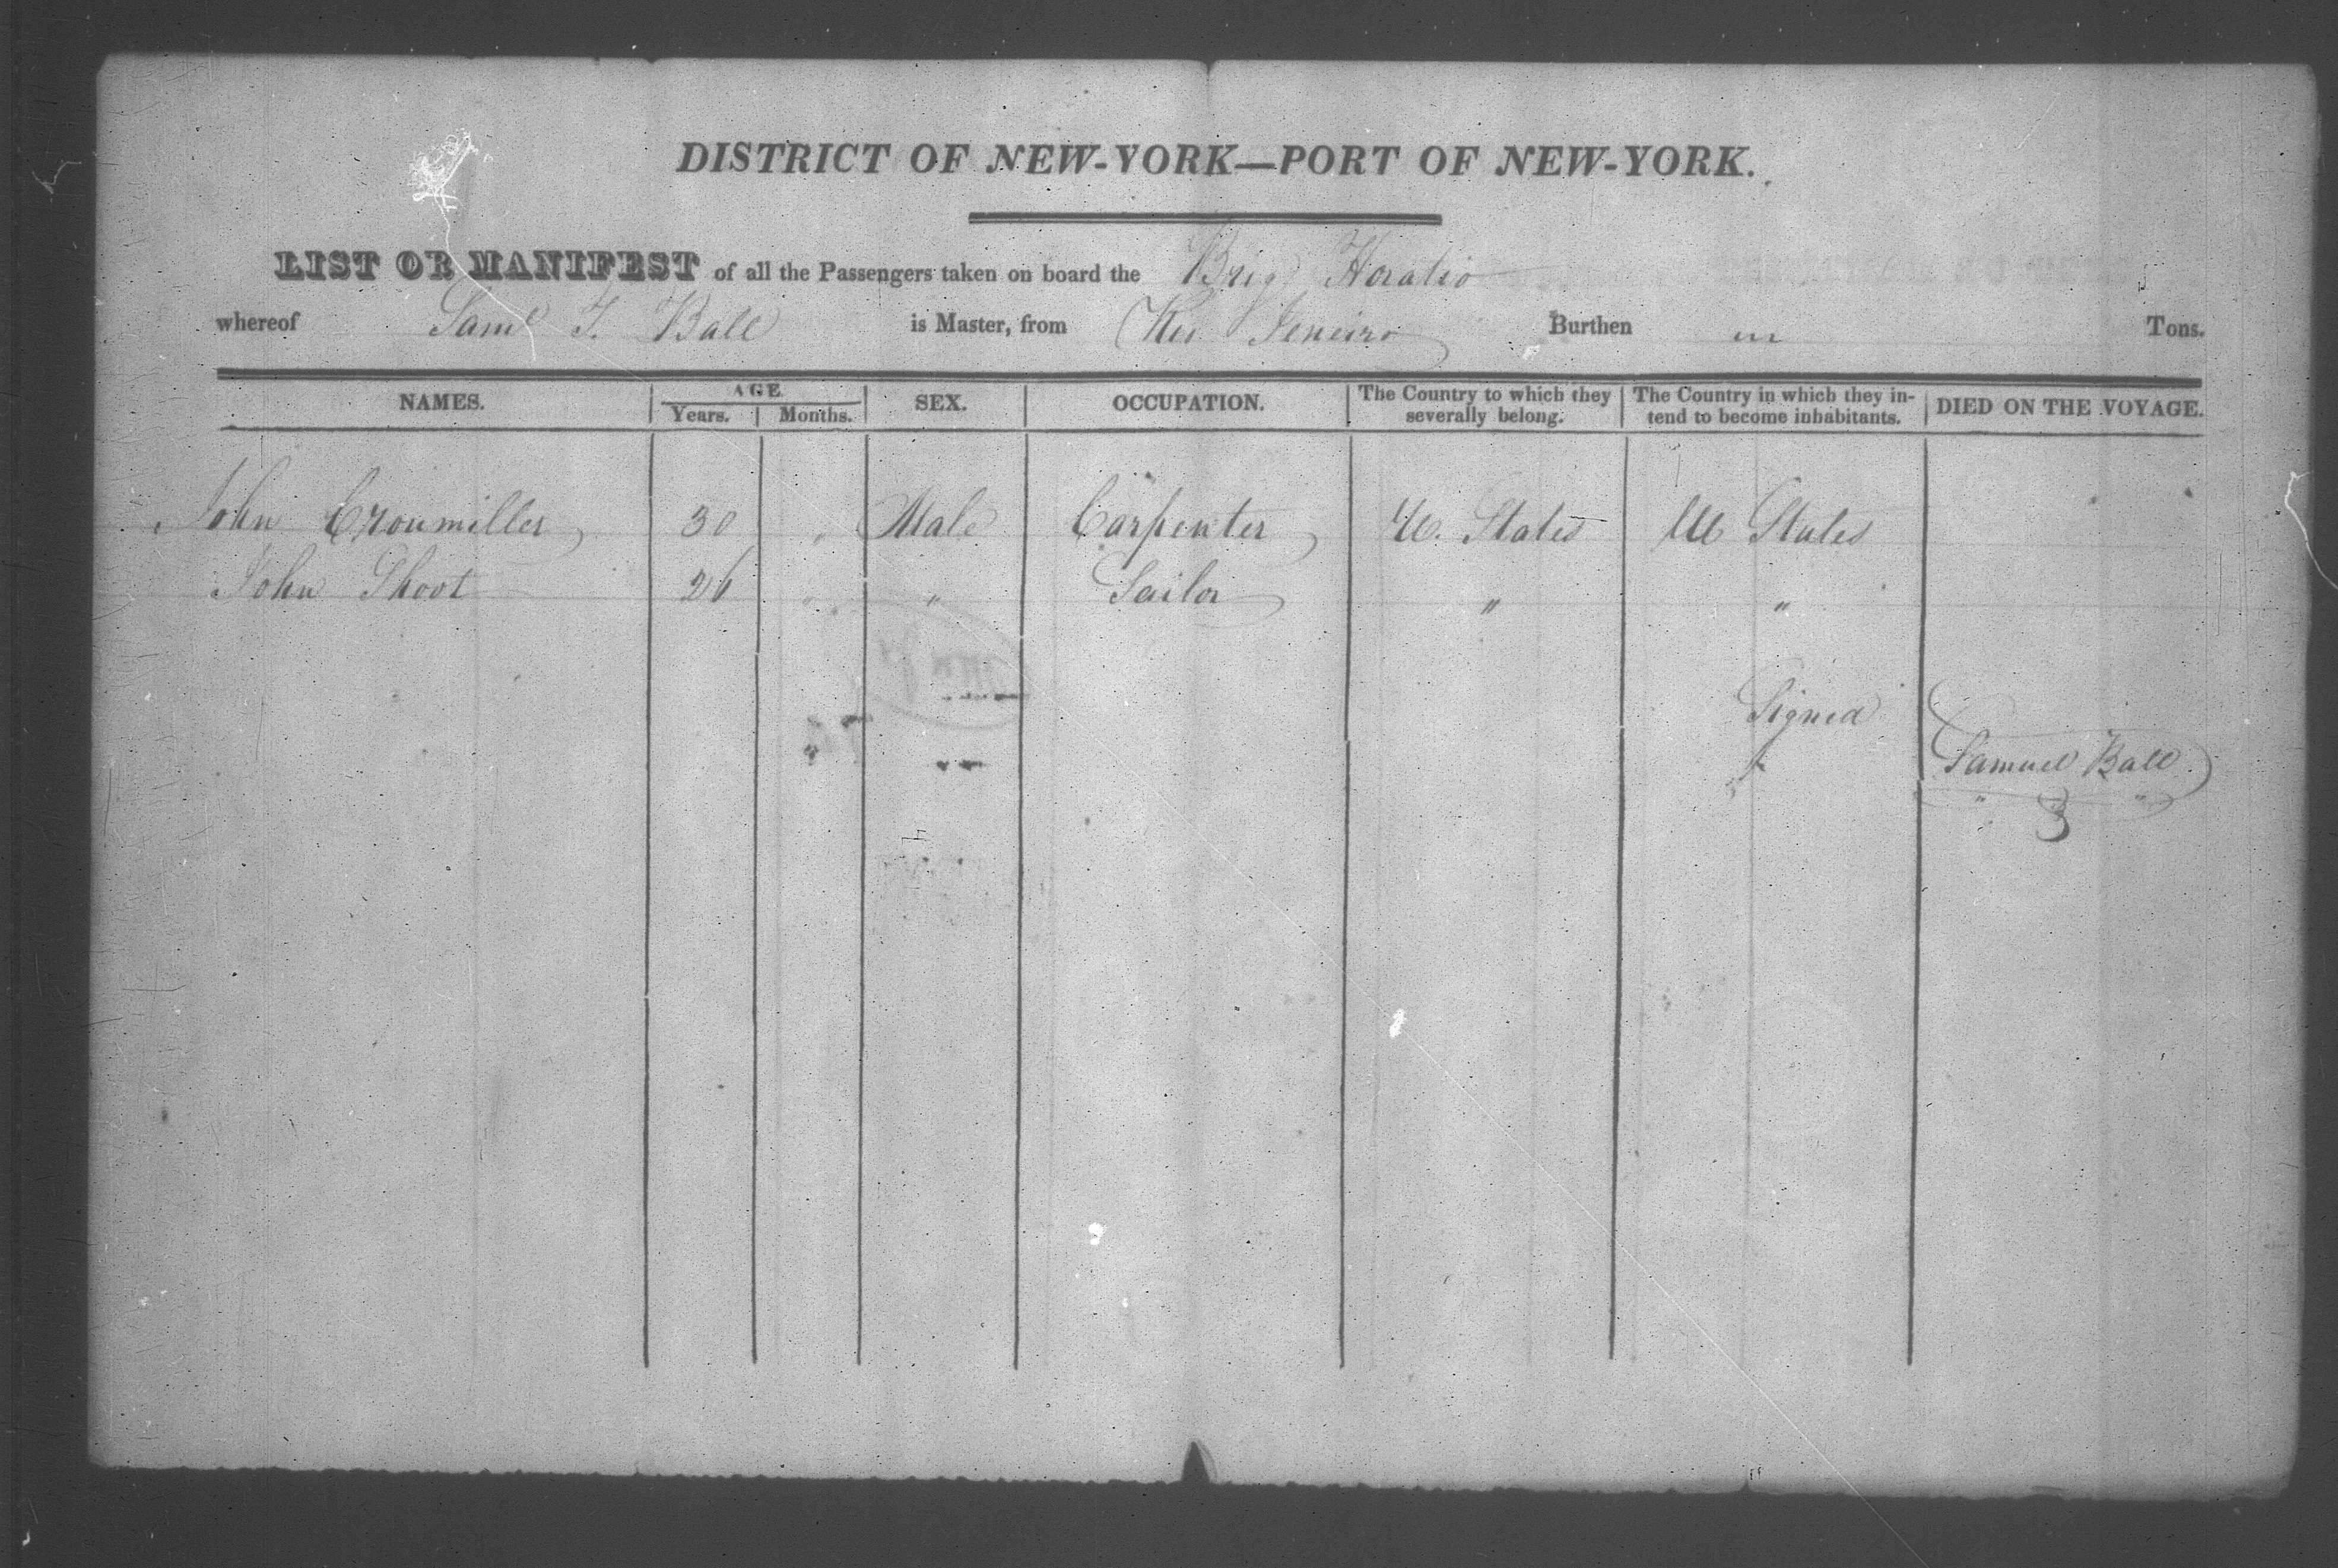 DISTRICT OF NEW-YORK—PORT OF NEW-YORK.
LIST OR MANIFEST of all the Passengers taken on board the Brig Horatio
whereof Saml T. Ball is Master, from Rio Jeneiro Burthen Tons.
NAMES. AGE. Years. Months. SEX. OCCUPATION. The Country to which they severally belong. The Country in which they intend to become inhabitants. DIED ON THE VOYAGE.
John Croumiller 30 " Male Carpenter U. States U States
John Shoot 26 " " Sailor " "
Signed
Samuel Ball